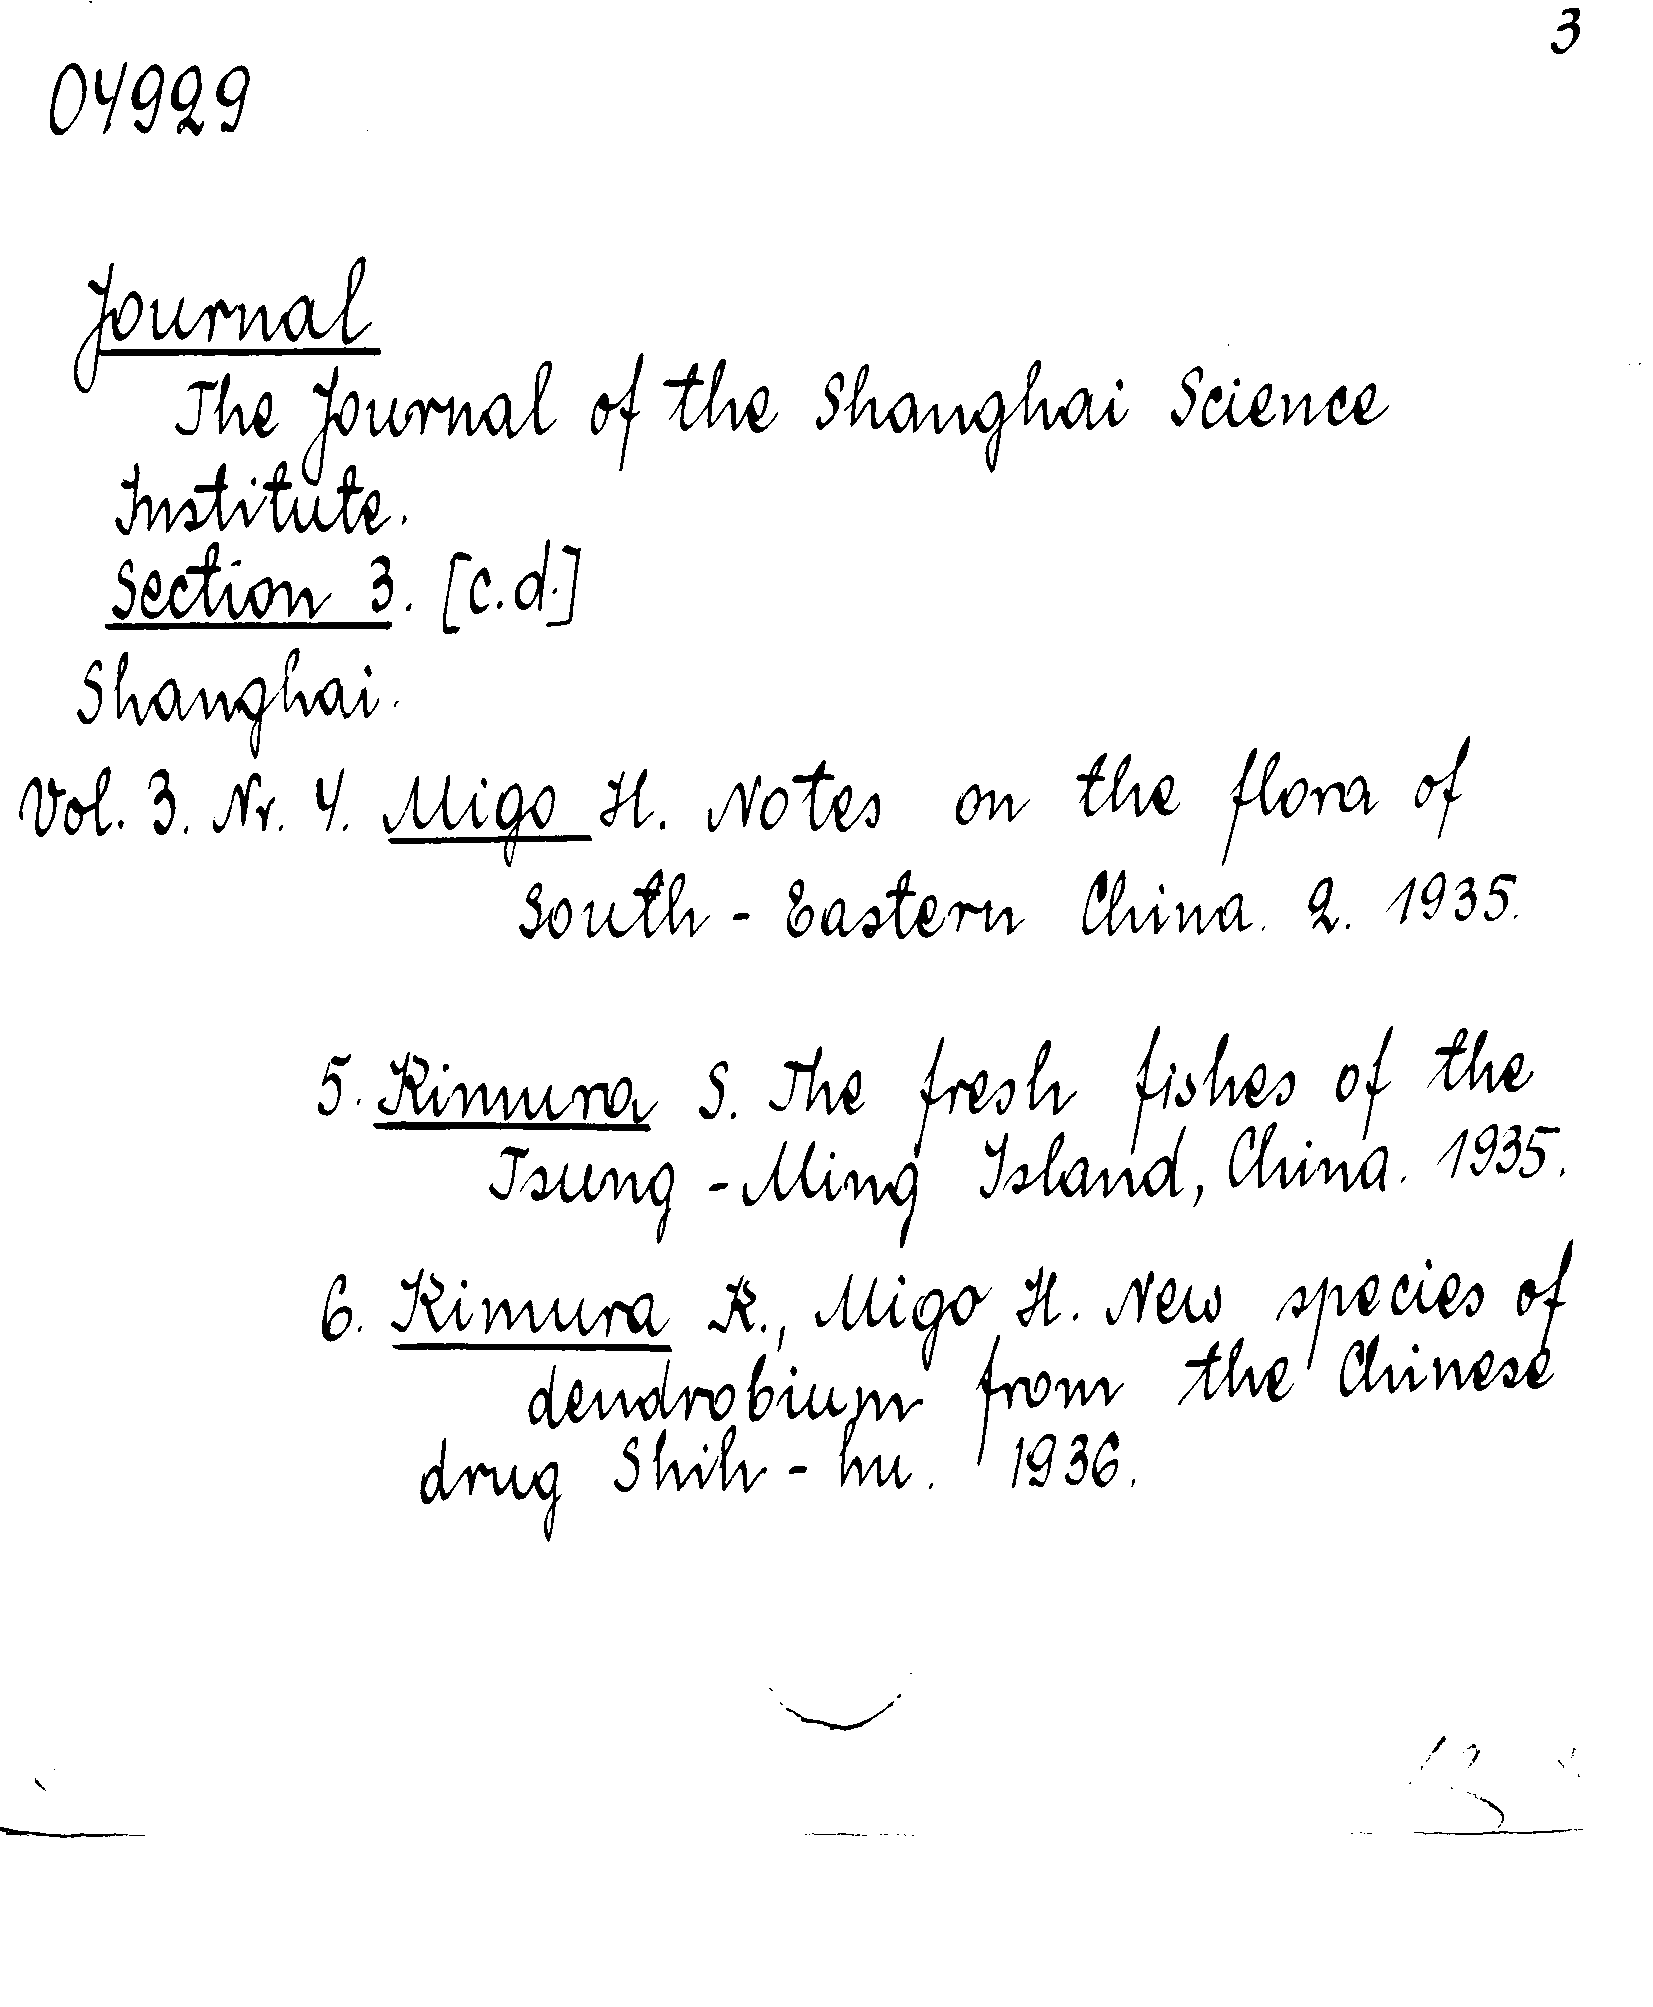 3
04929
Journal
The Journal of the Shanghai Science
Institute.
Section 3. [c.d.]
Shanghai.
Vol. 3. Nr. 4. Migo H. Notes on the flora of
South - Eastern China. 2. 1935.
5. Kimura S. The fresh fishes of the
Tsung - Ming Island, China. 1935.
6. Kimura K., Migo H. New species of
dendrobium from the Chinese
drug Shih - hu. 1936.